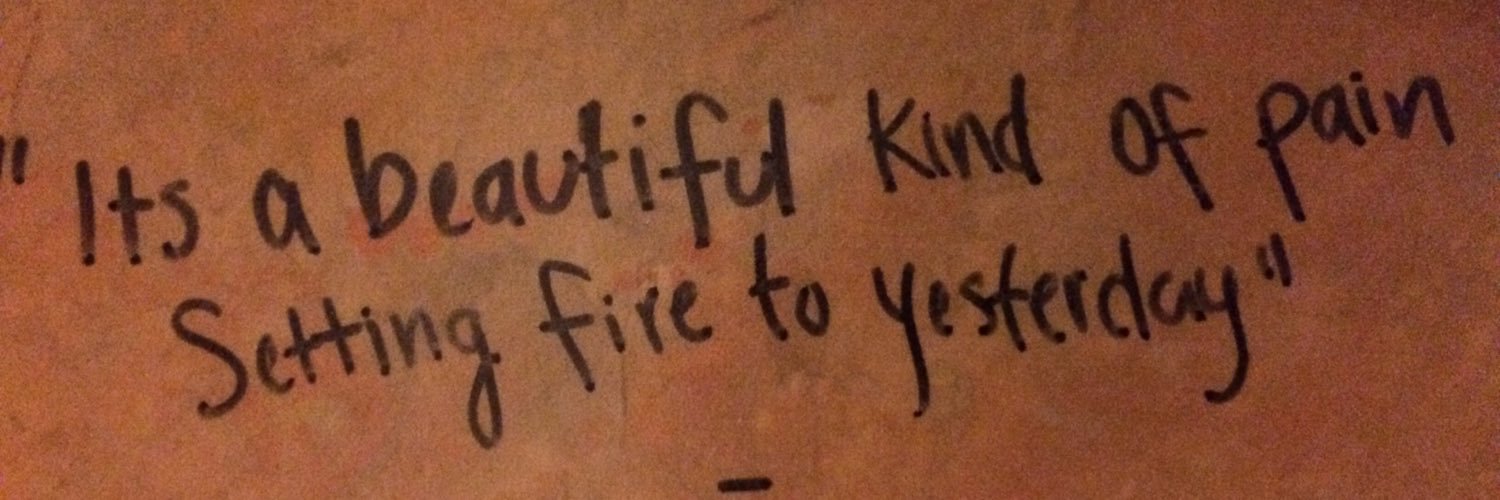 "Its a beautiful kind of pain
Setting fire to yesterday"
-